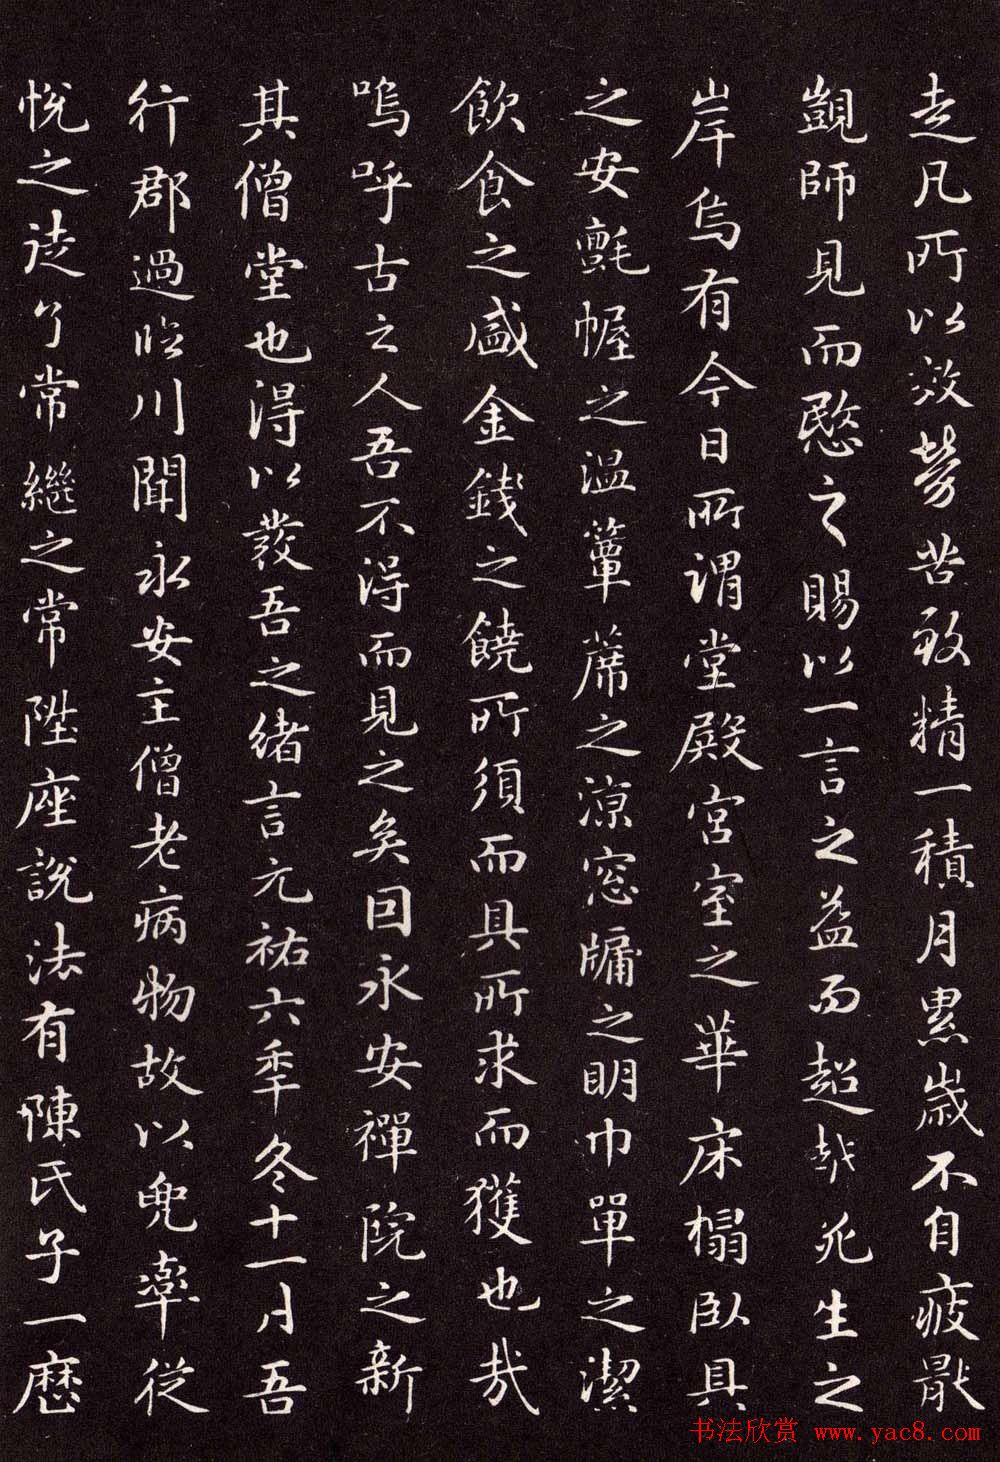 走凡所以效勞苦致精一積月累歲不自疲厭
覬師見而愍之賜以一言之益而超越死生之
岸烏有今日所謂堂殿宮室之華床榻臥具
之安氈幄之溫簟蓆之涼窓牖之明巾單之潔
飲食之盛金錢之饒所須而具所求而獲也哉
嗚呼古之人吾不得而見之矣因永安禪院之新
其僧堂也得以發吾之緒言元祐六季冬十一月吾
行郡過臨川聞永安主僧老病物故以兜率從
悅之徒了常繼之常陞座說法有陳氏子一歷
书法欣赏 www.yac8.com